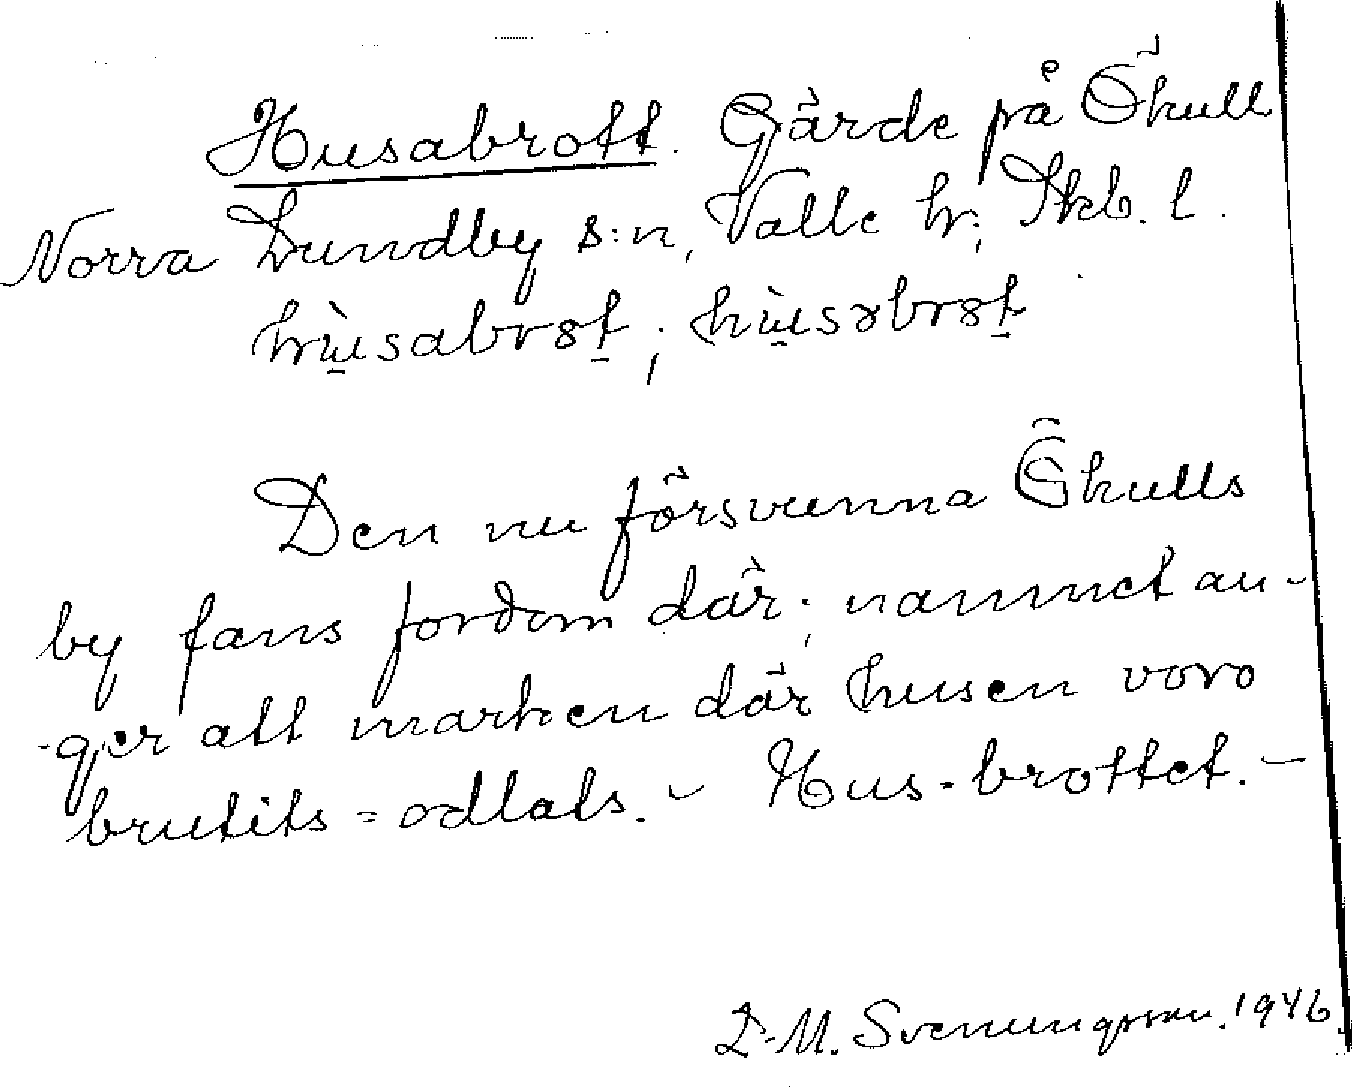 Husabrott. Gärde på Ökull
Norra Lundby s:n, Valle h; Skb. l.
hùsabrot; hùsəbrot
Den nu försvunna Ökulls
by fans fordom där; namnet an-
ger att marken där husen voro
brutits = odlats. - Hus-brottet. -
L-M. Svenungsson. 1946